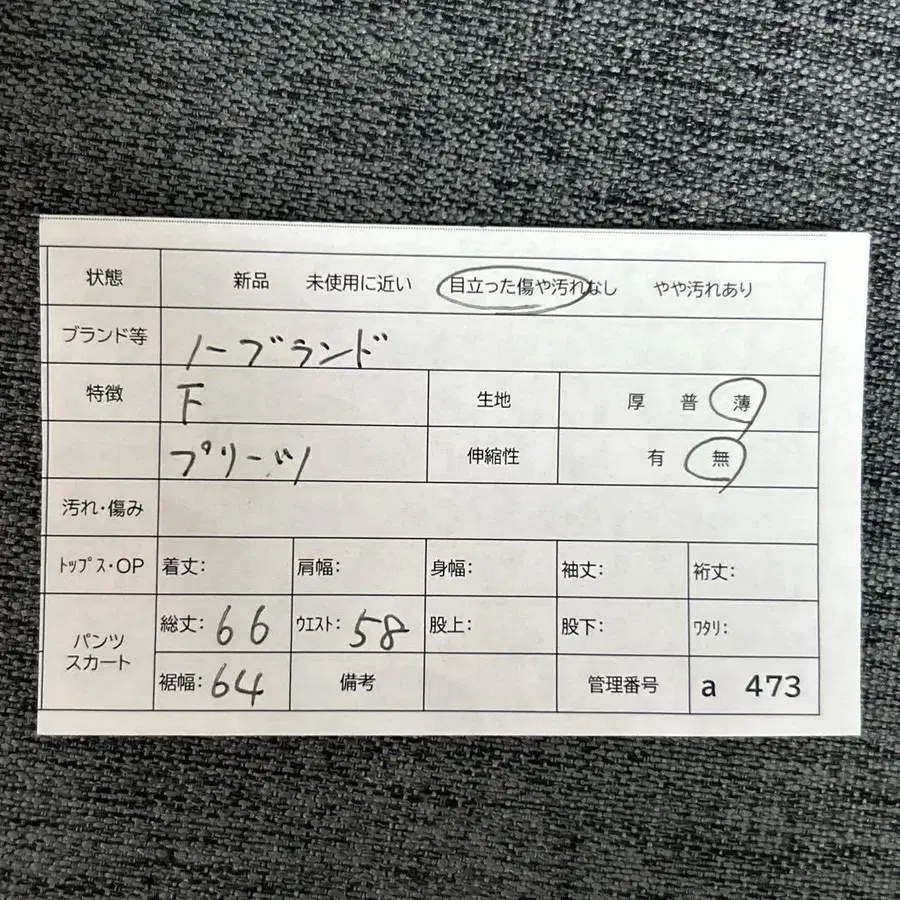 状態 新品 未使用に近い 目立った傷や汚れなし やや汚れあり
ブランド等 ノーブランド
特徴 下 生地 厚 普 薄
プリーツ 伸縮性 有 無
汚れ・傷み
ﾄｯﾌﾟｽ・OP 着丈: 肩幅: 身幅: 袖丈: 裄丈:
パンツ
スカート
総丈: 66 ｳｴｽﾄ: 58 股上: 股下: ﾜﾀﾘ:
裾幅: 64 備考 管理番号 a 473